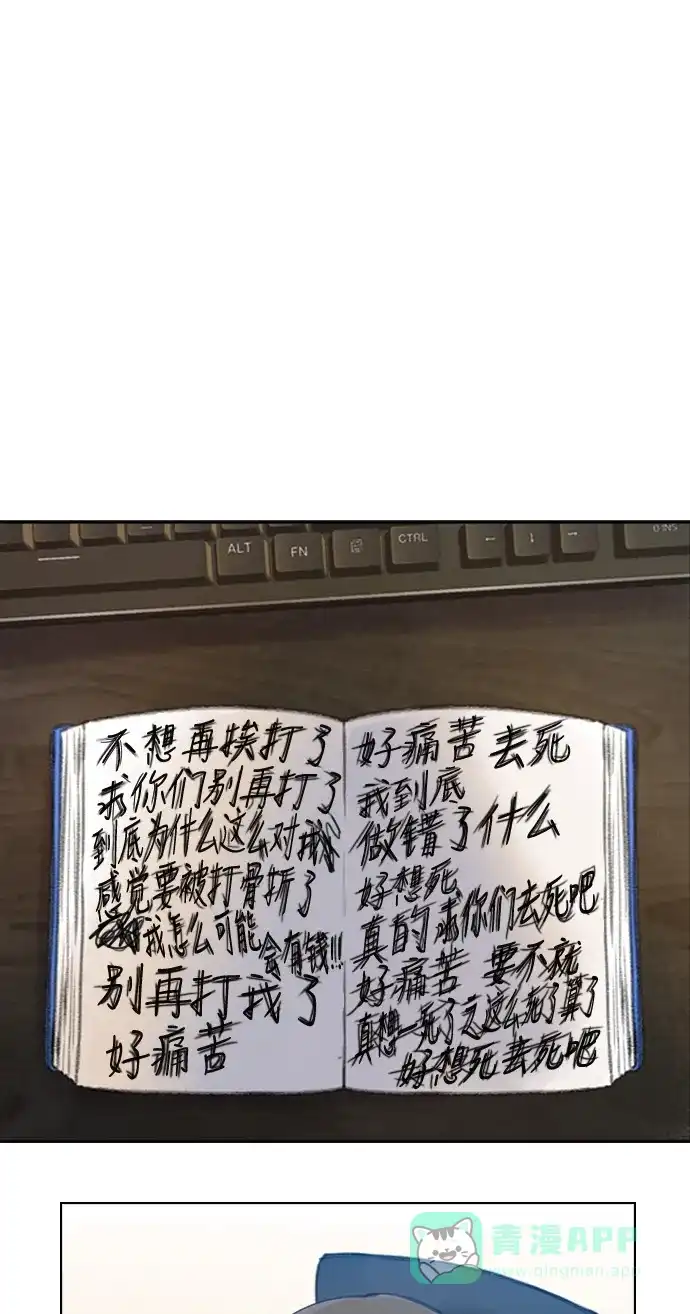 ALT
FN
CTRL
不想再挨打了
求你们别再打了
到底为什么这么对我
感觉要被打骨折了
我怎么可能会有钱!!!
别再打我了
好痛苦
好痛苦去死
我到底
做错了什么
好想死
真的求你们去死吧
好痛苦 要不就
真想一死了之这么死了算了
好想死去死吧
青漫APP
www.qingman.app